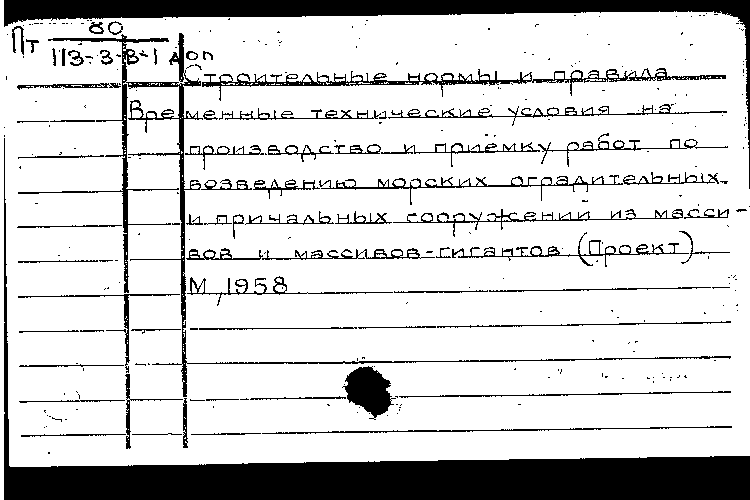 Пт 80
113-3-В-1 доп
Строительные нормы и правила
Временные технические условия на
производство и приёмку работ по
возведению морских оградительных
и причальных сооружений из масси-
вов и массивов-гигантов (Проект)
М, 1958